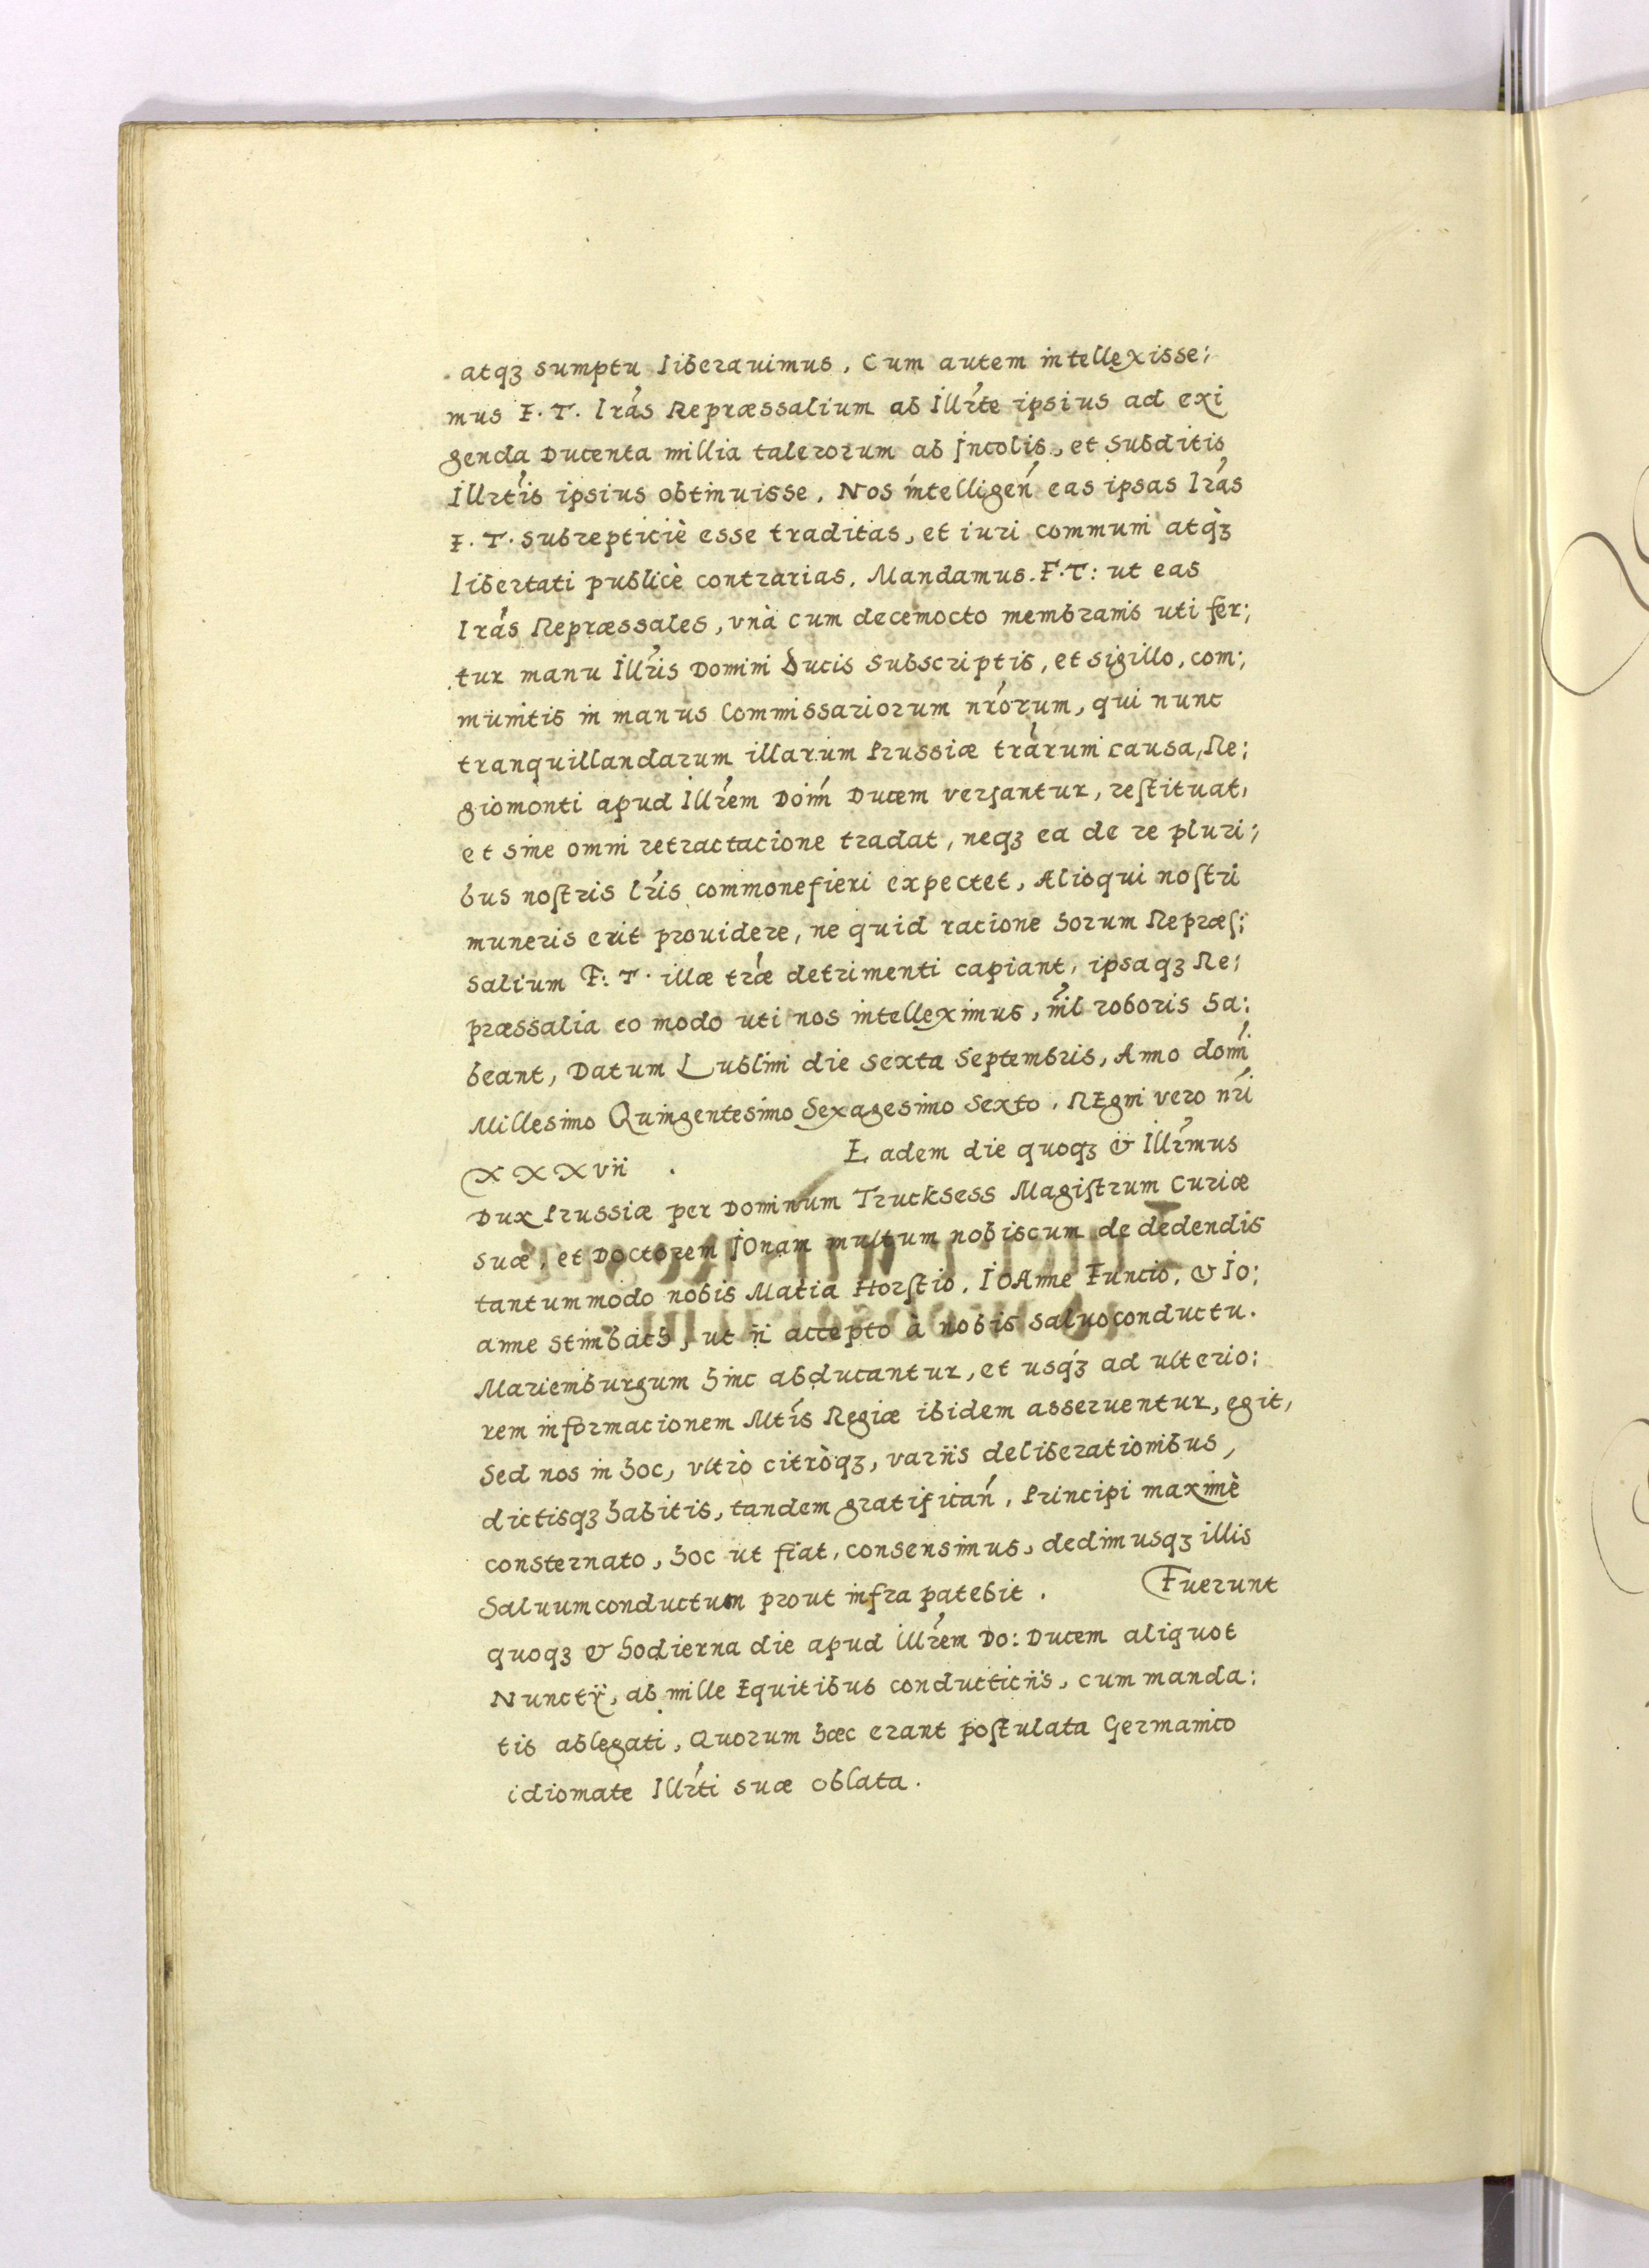 atqꝫ sumptu liberauimus, Cum autem intellexisse;
mus F. T. lrás Repræssalium ab Illrte ipsius ad exi
genda Ducenta millia talerorum ab Incolis, et Subditis
Illrtis ipsius obtinuisse, Nos intelligeń eas ipsas lrás
F. T. subrepticiè esse traditas, et iuri communi atqꝫ
libertati publicè contrarias, Mandamus. F. T: ut eas
lrás Repræssales, vnà cum decemocto membranis uti fer;
tur manu Illris Domini Ducis Subscriptis, et sigillo, com;
munitis in manus Commissariorum nrórum, qui nunc
tranquillandarum illarum Prussiæ trárum causa, Re;
giomonti apud Illrem Doim Ducem versantur, restituat,
et sine omni retractacione tradat, neqꝫ ea de re pluri;
bus nostris lris commonefieri expectet, Alioqui nostri
muneris erit prouidere, ne quid racione horum Repræs;
salium F: T. illæ træ detrimenti capiant, ipsaqꝫ Re;
præssalia eo modo uti nos intelleximus, nil roboris ha;
beant, Datum Lublini die Sexta Septembris, Anno domi
Millesimo Quingentesimo Sexagesimo Sexto, REgni vero nri
XXXvii . Eadem die quoqꝫ & Illrmus
Dux Prussiæ per Dominum Trucksess Magistrum Curiæ
suæ, et Doctorem IOnam multum nobiscum de dedendis
tantummodo nobis Matia Horstio, IOAnne Funcio, & Io;
anne Stinbach, ut ii accepto à nobis saluoconductu.
Mariemburgum hinc abducantur, et usqꝫ ad ulterio;
rem informacionem Mtis Regiæ ibidem asseruentur, egit,
Sed nos in hoc, vltrò citròqꝫ, variis deliberationibus,
dictisqꝫ habitis, tandem gratificań, Principi maximè
consternato, hoc ut fiat, consensimus, dedimusqꝫ illis
Saluumconductum prout infra patebit . Fuerunt
quoqꝫ & hodierna die apud Illrem Do: Ducem aliquot
Nunctij, ab mille Equitibus conducticiis, cum manda;
tis ablegati, Quorum hæc erant postulata Germanico
idiomate Illrti suæ oblata.